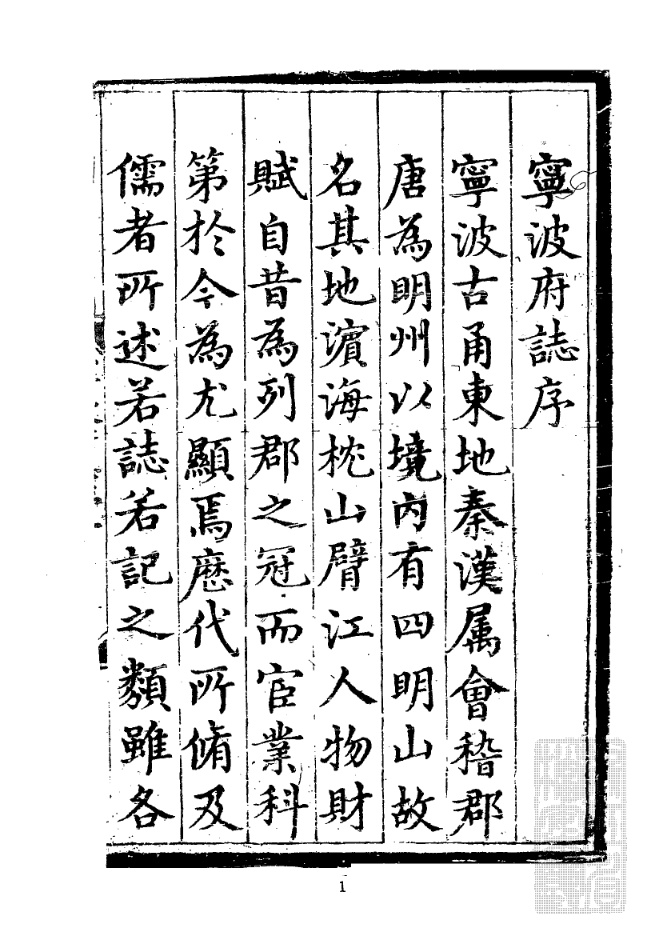 寧波府誌序
寧波古甬東地秦漢属會稽郡
唐為明州以境内有四明山故
名其地濵海枕山臂江人物財
賦自昔為列郡之冠而宦業科
第於今為尤顯焉歷代所脩及
儒者所述若誌若記之類雖各
1